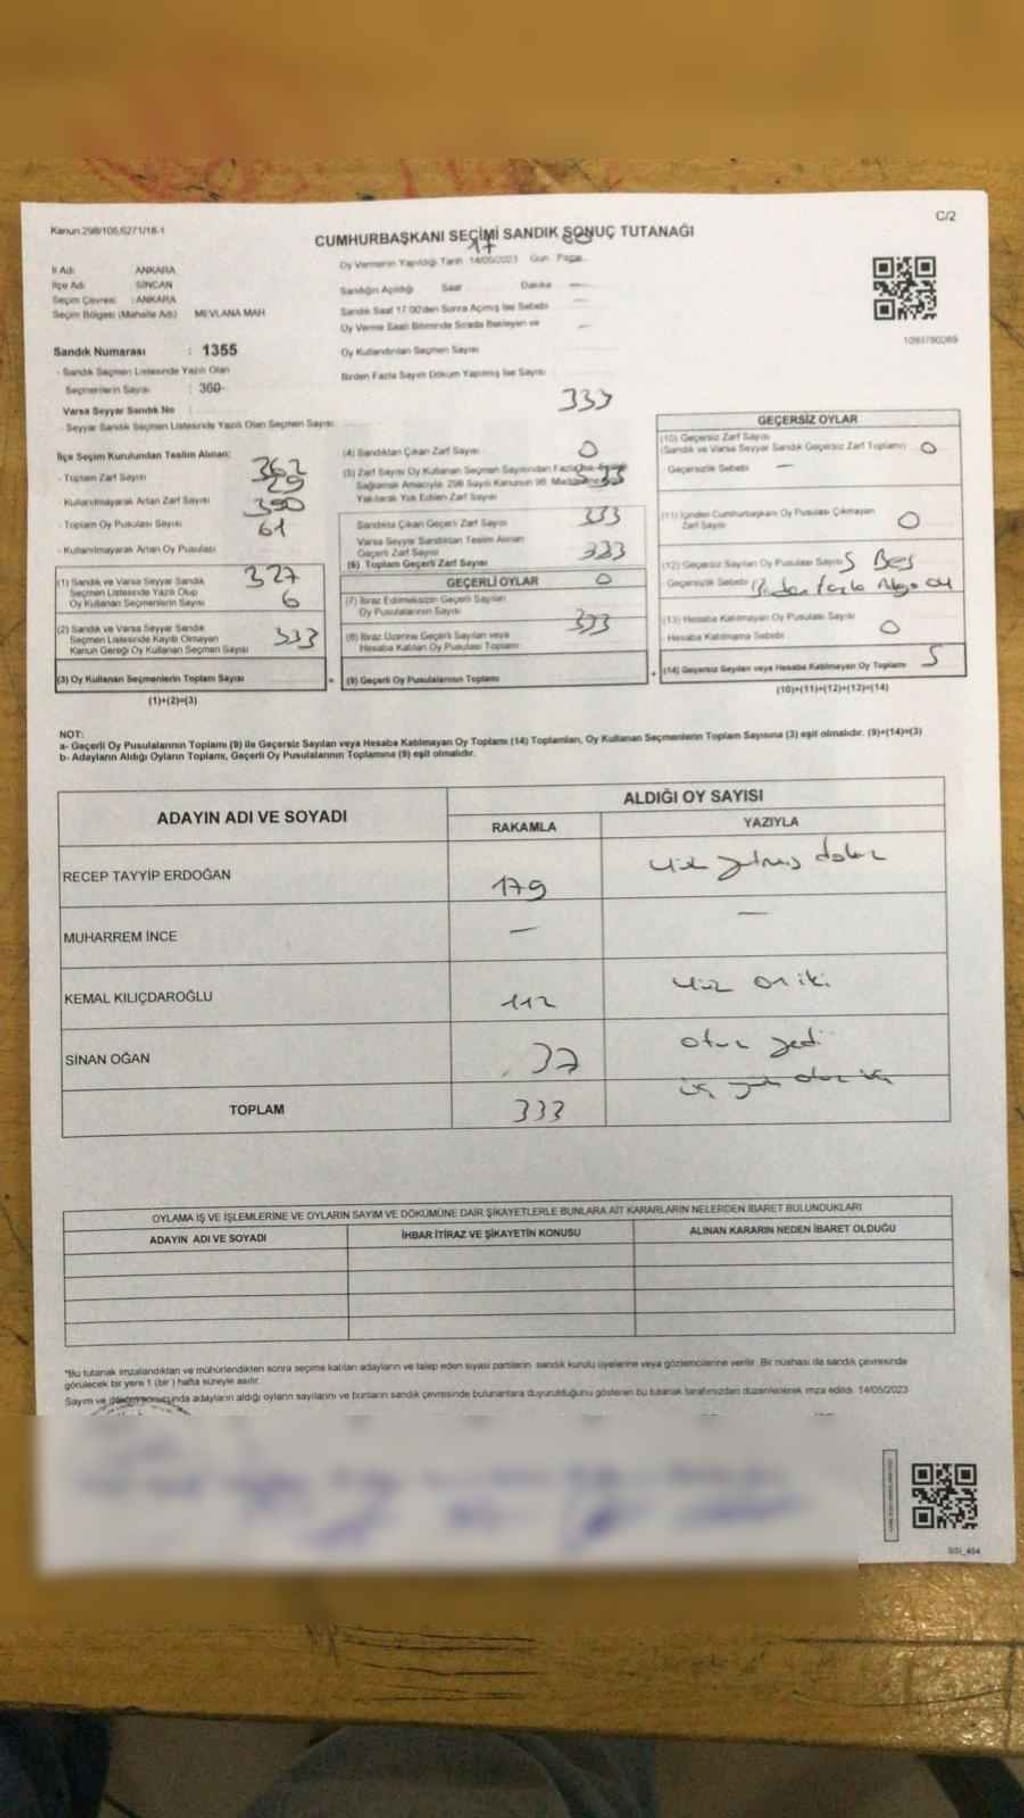 Kanun:298/105,6271/18-1
C/2
CUMHURBAŞKANI SEÇİMİ SANDIK SONUÇ TUTANAĞI
İl Adı : ANKARA
İlçe Adı : SİNCAN
Seçim Çevresi : ANKARA
Seçim Bölgesi (Mahalle Adı) MEVLANA MAH
Sandık Numarası : 1355
- Sandık Seçmen Listesinde Yazılı Olan
Seçmenlerin Sayısı : 360-
Varsa Seyyar Sandık No
- Seyyar Sandık Seçmen Listesinde Yazılı Olan Seçmen Sayısı
17 00
Oy Vermenin Yapıldığı Tarih 14/05/2023 Gün Pazar
Sandığın Açıldığı Saat Dakika —
Sandık Saat 17.00'den Sonra Açılmış İse Sebebi —
Oy Verme Saati Bitiminde Sırada Bekleyen ve —
Oy Kullandırılan Seçmen Sayısı
Birden Fazla Sayım Döküm Yapılmış İse Sayısı
1093780289
İlçe Seçim Kurulundan Teslim Alınan:
- Toplam Zarf Sayısı 362
Kullanılmayarak Artan Zarf Sayısı 29
- Toplam Oy Pusulası Sayısı 390
- Kullanılmayarak Artan Oy Pusulası 61
(1) Sandık ve Varsa Seyyar Sandık
Seçmen Listesinde Yazılı Olup
Oy Kullanan Seçmenlerin Sayısı
327
(2) Sandık ve Varsa Seyyar Sandık
Seçmen Listesinde Kayıtlı Olmayan
Kanun Gereği Oy Kullanan Seçmen Sayısı
6
(3) Oy Kullanan Seçmenlerin Toplam Sayısı
333
(1)+(2)=(3)
333
(4) Sandıktan Çıkan Zarf Sayısı
0
(5) Zarf Sayısı Oy Kullanan Seçmen Sayısından Fazla
Sağlamak Amacıyla 298 Sayılı Kanunun 98. Maddesine
Yakılarak Yok Edilen Zarf Sayısı
333
Sandıkta Çıkan Geçerli Zarf Sayısı
333
Varsa Seyyar Sandıktan Teslim Alınan
Geçerli Zarf Sayısı
333
(6) Toplam Geçerli Zarf Sayısı
GEÇERLİ OYLAR
0
(7) İtiraz Edilmeksizin Geçerli Sayılan
Oy Pusulalarının Sayısı
333
(8) İtiraz Üzerine Geçerli Sayılan veya
Hesaba Katılan Oy Pusulası Toplamı
+
(9) Geçerli Oy Pusulalarının Toplamı
+
GEÇERSİZ OYLAR
(10) Geçersiz Zarf Sayısı
(Sandık ve Varsa Seyyar Sandık Geçersiz Zarf Toplamı) 0
Geçersizlik Sebebi —
(11) İçinden Cumhurbaşkanı Oy Pusulası Çıkmayan
Zarf Sayısı 0
(12) Geçersiz Sayılan Oy Pusulası Sayısı 5 Beş
Geçersizlik Sebebi Birden fazla
(13) Hesaba Katılmayan Oy Pusulası Sayısı 0
Hesaba Katılmama Sebebi
(14) Geçersiz Sayılan veya Hesaba Katılmayan Oy Toplamı 5
(10)+(11)+(12)+(13)=(14)
NOT:
a- Geçerli Oy Pusulalarının Toplamı (9) ile Geçersiz Sayılan veya Hesaba Katılmayan Oy Toplamı (14) Toplamları, Oy Kullanan Seçmenlerin Toplam Sayısına (3) eşit olmalıdır. (9)+(14)=(3)
b- Adayların Aldığı Oyların Toplamı, Geçerli Oy Pusulalarının Toplamına (9) eşit olmalıdır.
ADAYIN ADI VE SOYADI
ALDIĞI OY SAYISI
RAKAMLA
YAZIYLA
RECEP TAYYİP ERDOĞAN 179 yüz yetmiş dokuz
MUHARREM İNCE — —
KEMAL KILIÇDAROĞLU 112 yüz on iki
SİNAN OĞAN 37 otuz yedi
TOPLAM 333 üç yüz otuz üç
OYLAMA İŞ VE İŞLEMLERİNE VE OYLARIN SAYIM VE DÖKÜMÜNE DAİR ŞİKAYETLERLE BUNLARA AİT KARARLARIN NELERDEN İBARET BULUNDUKLARI
ADAYIN ADI VE SOYADI
İHBAR İTİRAZ VE ŞİKAYETİN KONUSU
ALINAN KARARIN NEDEN İBARET OLDUĞU
*Bu tutanak imzalandıktan ve mühürlendikten sonra seçime katılan adayların ve talep eden siyasi partilerin sandık kurulu üyelerine veya gözlemcilerine verilir. Bir nüshası da sandık çevresinde
görülecek bir yere 1 (bir) hafta süreyle asılır.
Sayım ve döküm sonucunda adayların aldığı oyların sayılarını ve bunların sandık çevresinde bulunanlara duyurulduğunu gösteren bu tutanak tarafımızdan düzenlenerek imza edildi. 14/05/2023